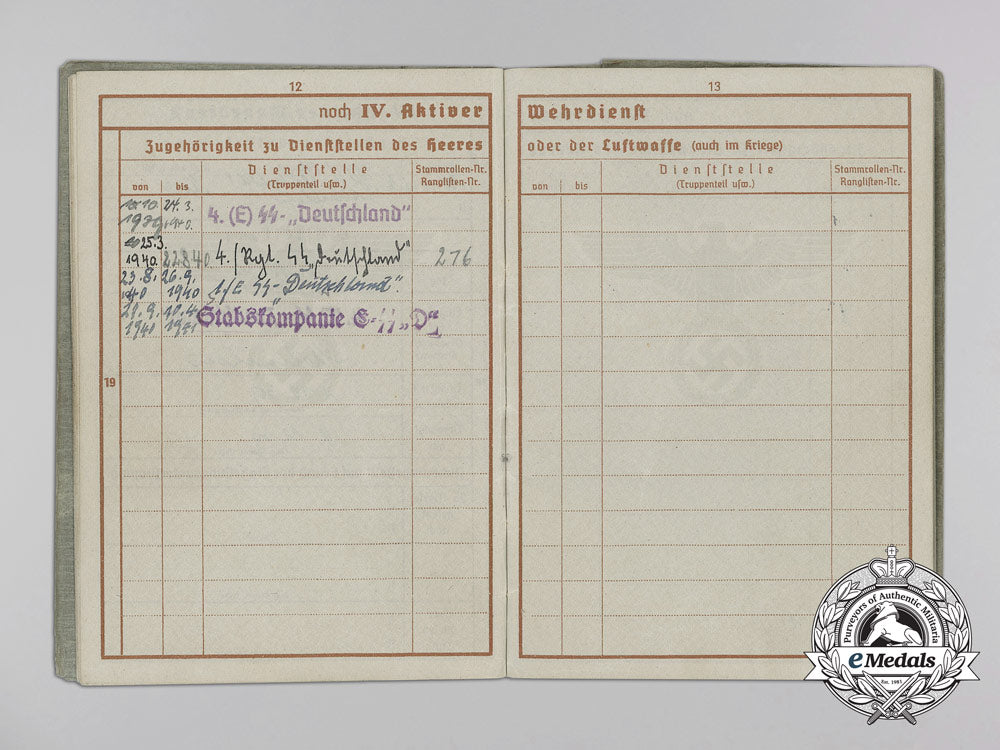 12
noch IV. Aktiver
Zugehörigkeit zu Dienststellen des Heeres
von bis Dienststelle (Truppenteil usw.) Stammrollen-Nr. Ranglisten-Nr.
24. 3.
1939 1940. 4. (E) SS-„Deutschland"
25.3.
1940. 22 8 40. 4./Rgt. SS „Deutschland" 276
23.8. 26.9.
40 1940 1/E SS-„Deutschland"
10.4.
1940 1941 Stabskompanie E-SS „D"
19
13
Wehrdienst
oder der Luftwaffe (auch im Kriege)
von bis Dienststelle (Truppenteil usw.) Stammrollen-Nr. Ranglisten-Nr.
Purveyors of Authentic Militaria
eMedals
Est. 1981